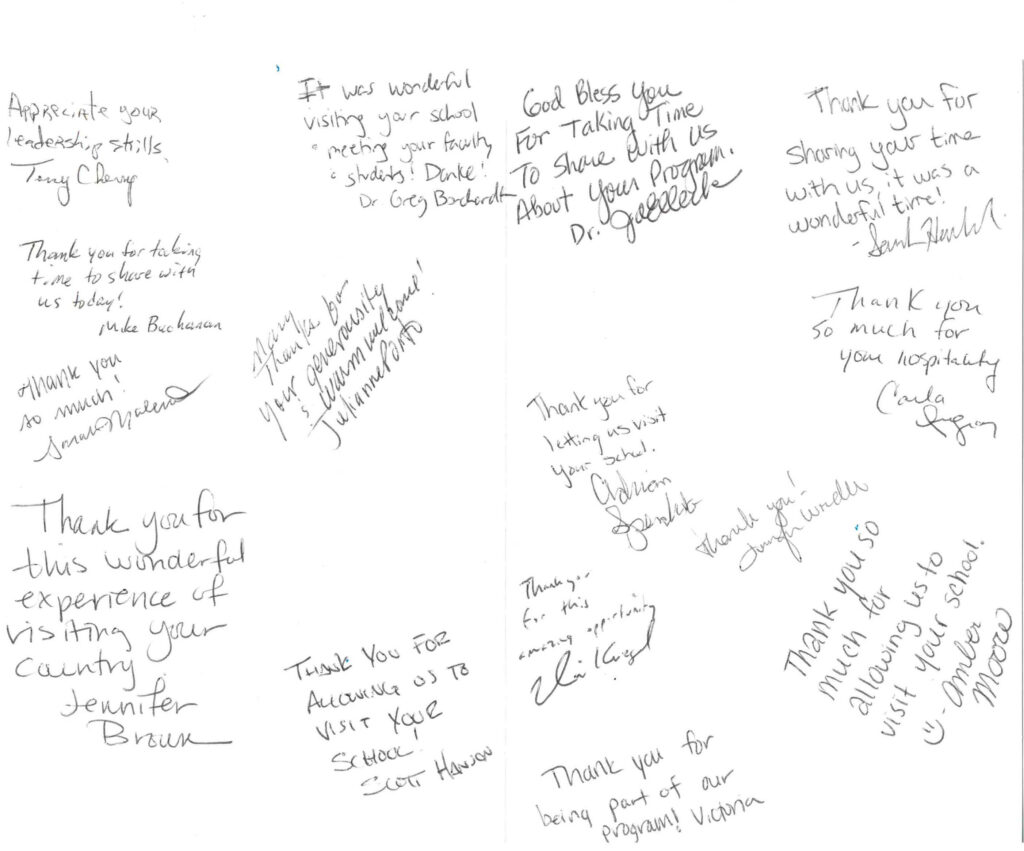 Appreciate your
leadership skills,
Tony
Thank you for taking
time to share with
us today!
Mike Buchanan
Thank you
so much!
Sarah
Thank you for
this wonderful
experience of
visiting your
Country
Jennifer
Brown
It was wonderful
visiting your school
meeting your faculty
students! Danke!
Dr Greg Borchardt
Many
Thanks for
your generousity
& warm welcome!
Julianne
Thank You For
Allowing us to
visit your
School!
Scott Hanson
God Bless You
For Taking Time
To Share With us
About Your Program.
Dr.
Thank you for
letting us visit
your school.
Adrian
Thank you!
Thank you
for this
amazing opportunity
Thank you for
being part of our
program! Victoria
Thank you for
sharing your time
with us, it was a
wonderful time!
- Sarah
Thank you
so much for
your hospitality
Carla
Thank you so
much for
allowing us to
visit your school.
- Amber
Moore